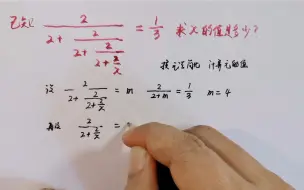 已知 \frac{2}{2+\frac{2}{2+\frac{2}{2+\frac{2}{x}}}} = \frac{1}{3} 求X的值是多少?
换元法简化 计算元的值
设 \frac{2}{2+\frac{2}{2+\frac{2}{x}}} = m \frac{2}{2+m} = \frac{1}{3} m = 4
再设 \frac{2}{2+\frac{2}{x}} =